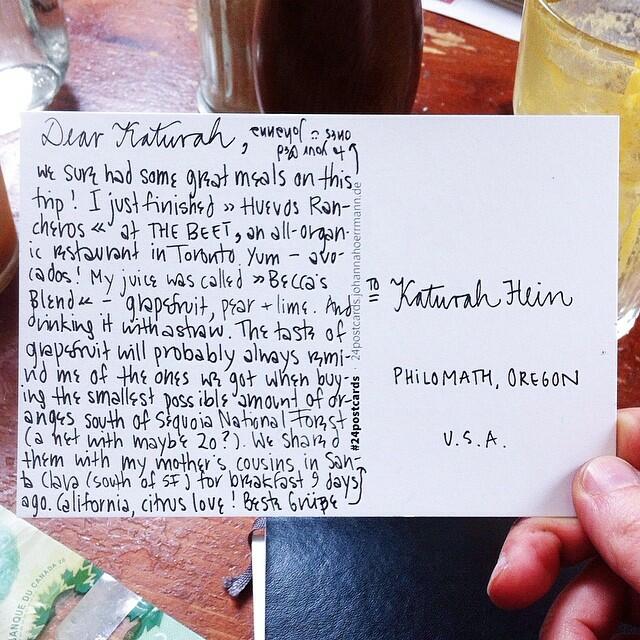 Dear Katurah,
we sure had some great meals on this
trip! I just finished » Huevos Ran-
cheros « at THE BEET, an all-organ-
ic restaurant in Toronto. Yum – avo-
cados! My juice was called » Becca's
Blend « – grapefruit, pear + lime. And
drinking it with a straw. The taste of
grapefruit will probably always remi-
nd me of the ones we got when buy-
ing the smallest possible amount of or-
anges south of Sequoia National Forest
(a net with maybe 20?). We shared
them with my mother's cousins in San-
ta Clava (south of SF) for breakfast 9 days
ago. California, citrus love! Beste Grüße
to your Oed
ones = Johanna
#24postcards · 24postcards.johannahoerrmann.de
TO Katurah Hein
PHILOMATH, OREGON
U.S.A.
BANQUE DU CANADA